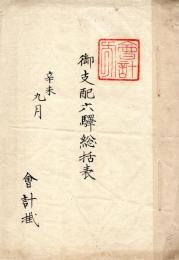 御支配六驛総括表
辛未
九月
會計掛